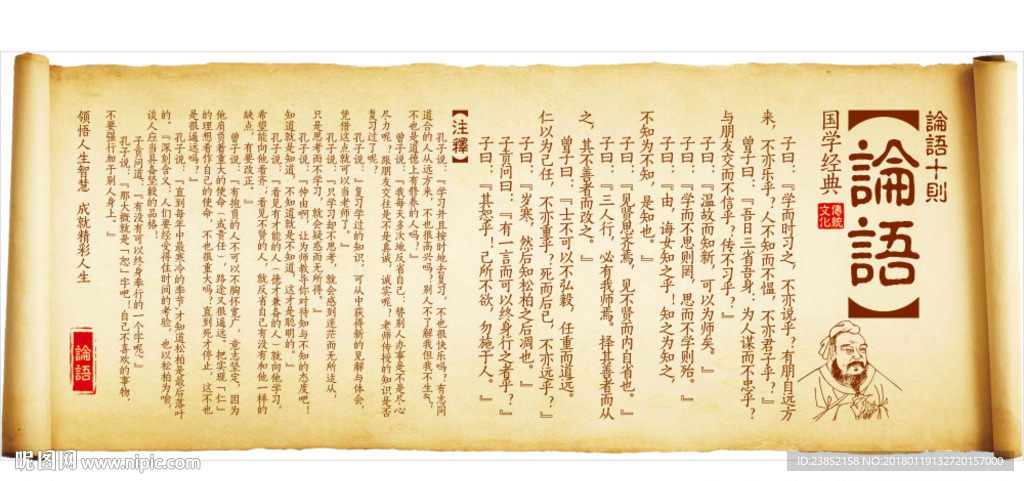 論語十則
【論語】
国学经典
傳統
文化
子曰：『学而时习之，不亦说乎？有朋自远方
来，不亦乐乎？人不知而不愠，不亦君子乎？』
曾子曰：『吾日三省吾身：为人谋而不忠乎？
与朋友交而不信乎？传不习乎？』
子曰：『温故而知新，可以为师矣。』
子曰：『学而不思则罔，思而不学则殆。』
子曰：『由，诲女知之乎！知之为知之，
不知为不知，是知也。』
子曰：『见贤思齐焉，见不贤而内自省也。』
子曰：『三人行，必有我师焉。择其善者而从
之，其不善者而改之。』
曾子曰：『士不可以不弘毅，任重而道远。
仁以为己任，不亦重乎？死而后已，不亦远乎？』
子曰：『岁寒，然后知松柏之后凋也。』
子贡问曰：『有一言而可以终身行之者乎？』
子曰：『其恕乎！己所不欲，勿施于人。』
【注釋】
孔子说：『学习并且按时地去复习，不也很快乐吗？有志同
道合的人从远方来，不也很高兴吗？别人不了解我但我不生气，
不也是道德上有修养的人吗？』
曾子说：『我每天多次地反省自己：替别人办事是不是尽心
尽力呢？跟朋友交往是不是真诚，诚实呢？老师传授的知识是否
复习过了呢？』
孔子说：『复习学过的知识，可从中获得新的见解与体会，
凭借这点就可以当老师了。』
孔子说：『只学习却不思考，就会感到迷茫而无所适从，
只是思考而不学习，就会疑惑而无所得。』
孔子说：『仲由啊，让为师教导你对待知与不知的态度吧！
知道就是知道，不知道就是不知道，这才是聪明的。』
孔子说：『看见有才能的人（德才兼备的人）就向他学习，
希望能向他看齐；看见不贤的人，就反省自己有没有和他一样的
缺点，有要改正。』
曾子说：『有抱负的人不可以不胸怀宽广，意志坚定，因为
他肩负着重大的使命（或责任），路途又很遥远。把实现「仁」
的理想看作自己的使命，不也很重大吗？直到死才停止，这不也
是很遥远吗？』
孔子说：『一直到每年中最寒冷的季节，才知道松柏是最后落叶
的。『深刻含义：人们要经受得住时间的考验，也以松柏为喻，
谈人应当具备坚毅的品格。
子贡问道：『有没有可以终身奉行的一个字呢？』
孔子说：『那大概就是「恕」字吧！自己不喜欢的事物，
不要强行加于别人身上。』
领悟人生智慧 成就精彩人生
論語
昵图网 www.nipic.com
ID:23852158 NO:20180119132720157000